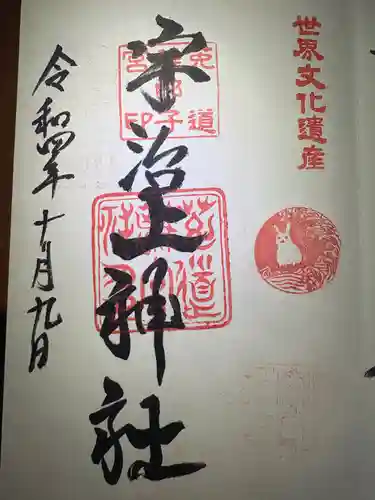 世界文化遺産
宇治上神社
令和四年十月九日